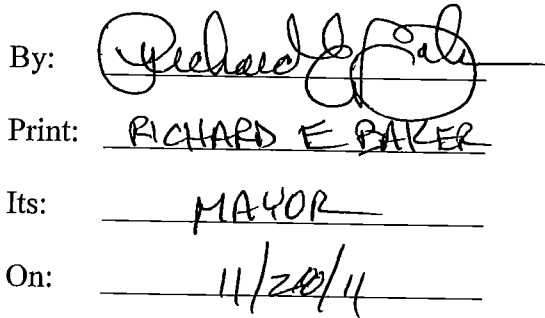 By: Richard E Baker
Print: RICHARD E BAKER
Its: MAYOR
On: 11/20/11